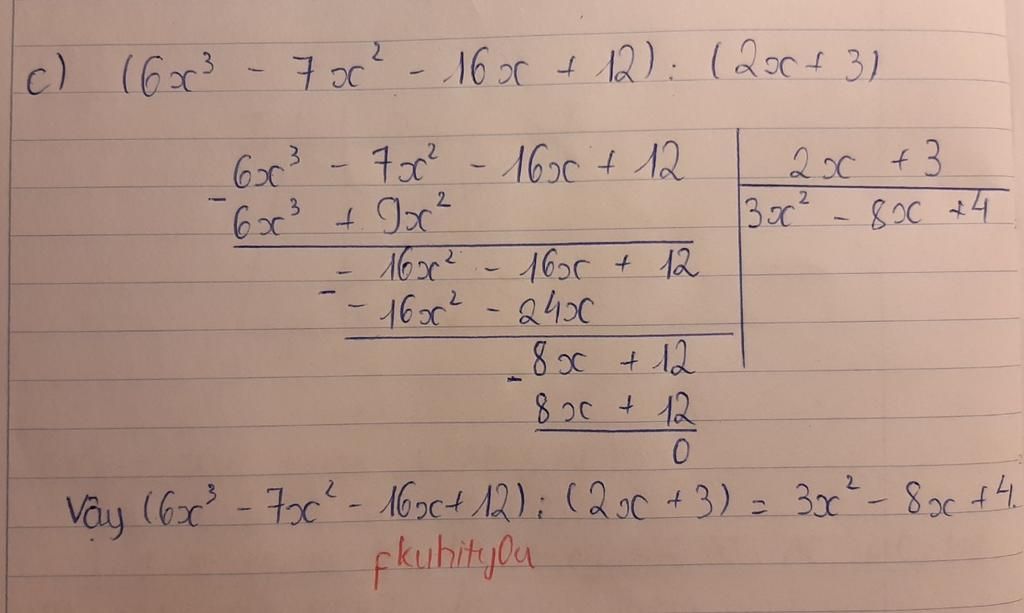 c) (6x³ - 7x² - 16x + 12) : (2x + 3)
6x³ - 7x² - 16x + 12 | 2x + 3
- 6x³ + 9x² | 3x² - 8x + 4
- 16x² - 16x + 12
- - 16x² - 24x
8x + 12
- 8x + 12
0
Vậy (6x³ - 7x² - 16x + 12) : (2x + 3) = 3x² - 8x + 4.
fkuhity0u